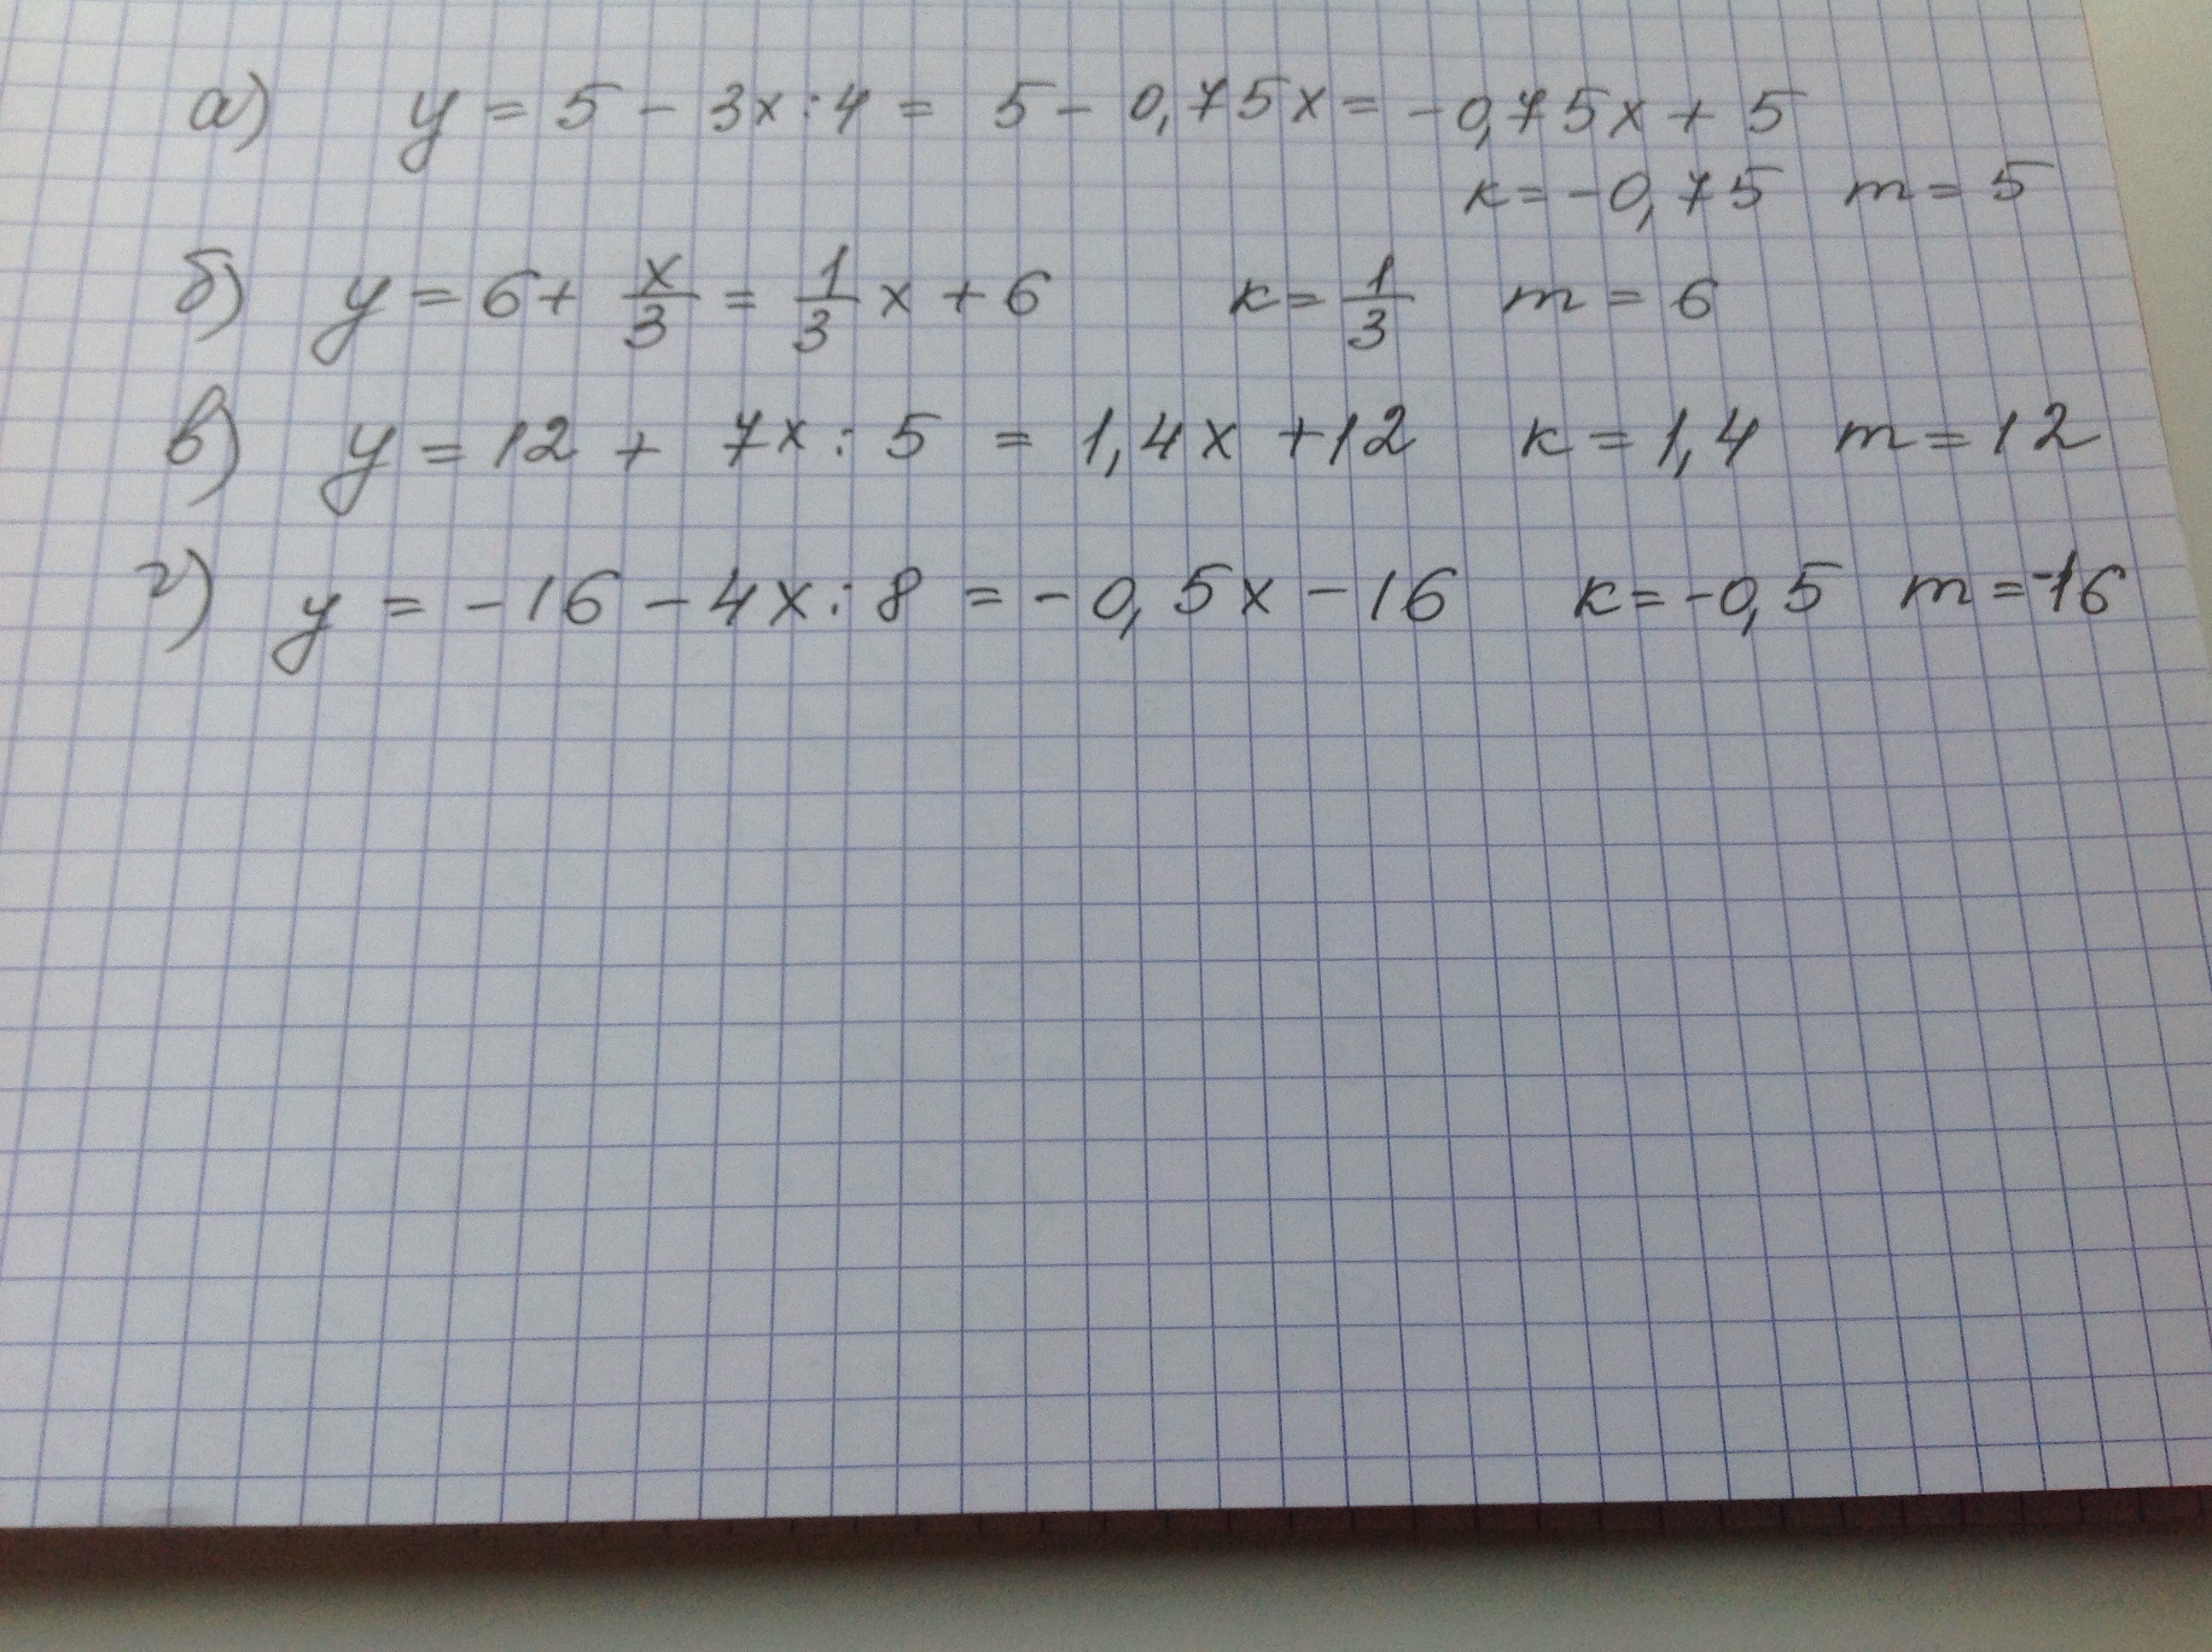 а) y = 5 - 3x : 4 = 5 - 0,75x = -0,75x + 5
к = -0,75 m = 5
б) y = 6 + x/3 = 1/3 x + 6 к = 1/3 m = 6
в) y = 12 + 7x : 5 = 1,4x + 12 к = 1,4 m = 12
г) y = -16 - 4x : 8 = -0,5x - 16 к = -0,5 m = -16